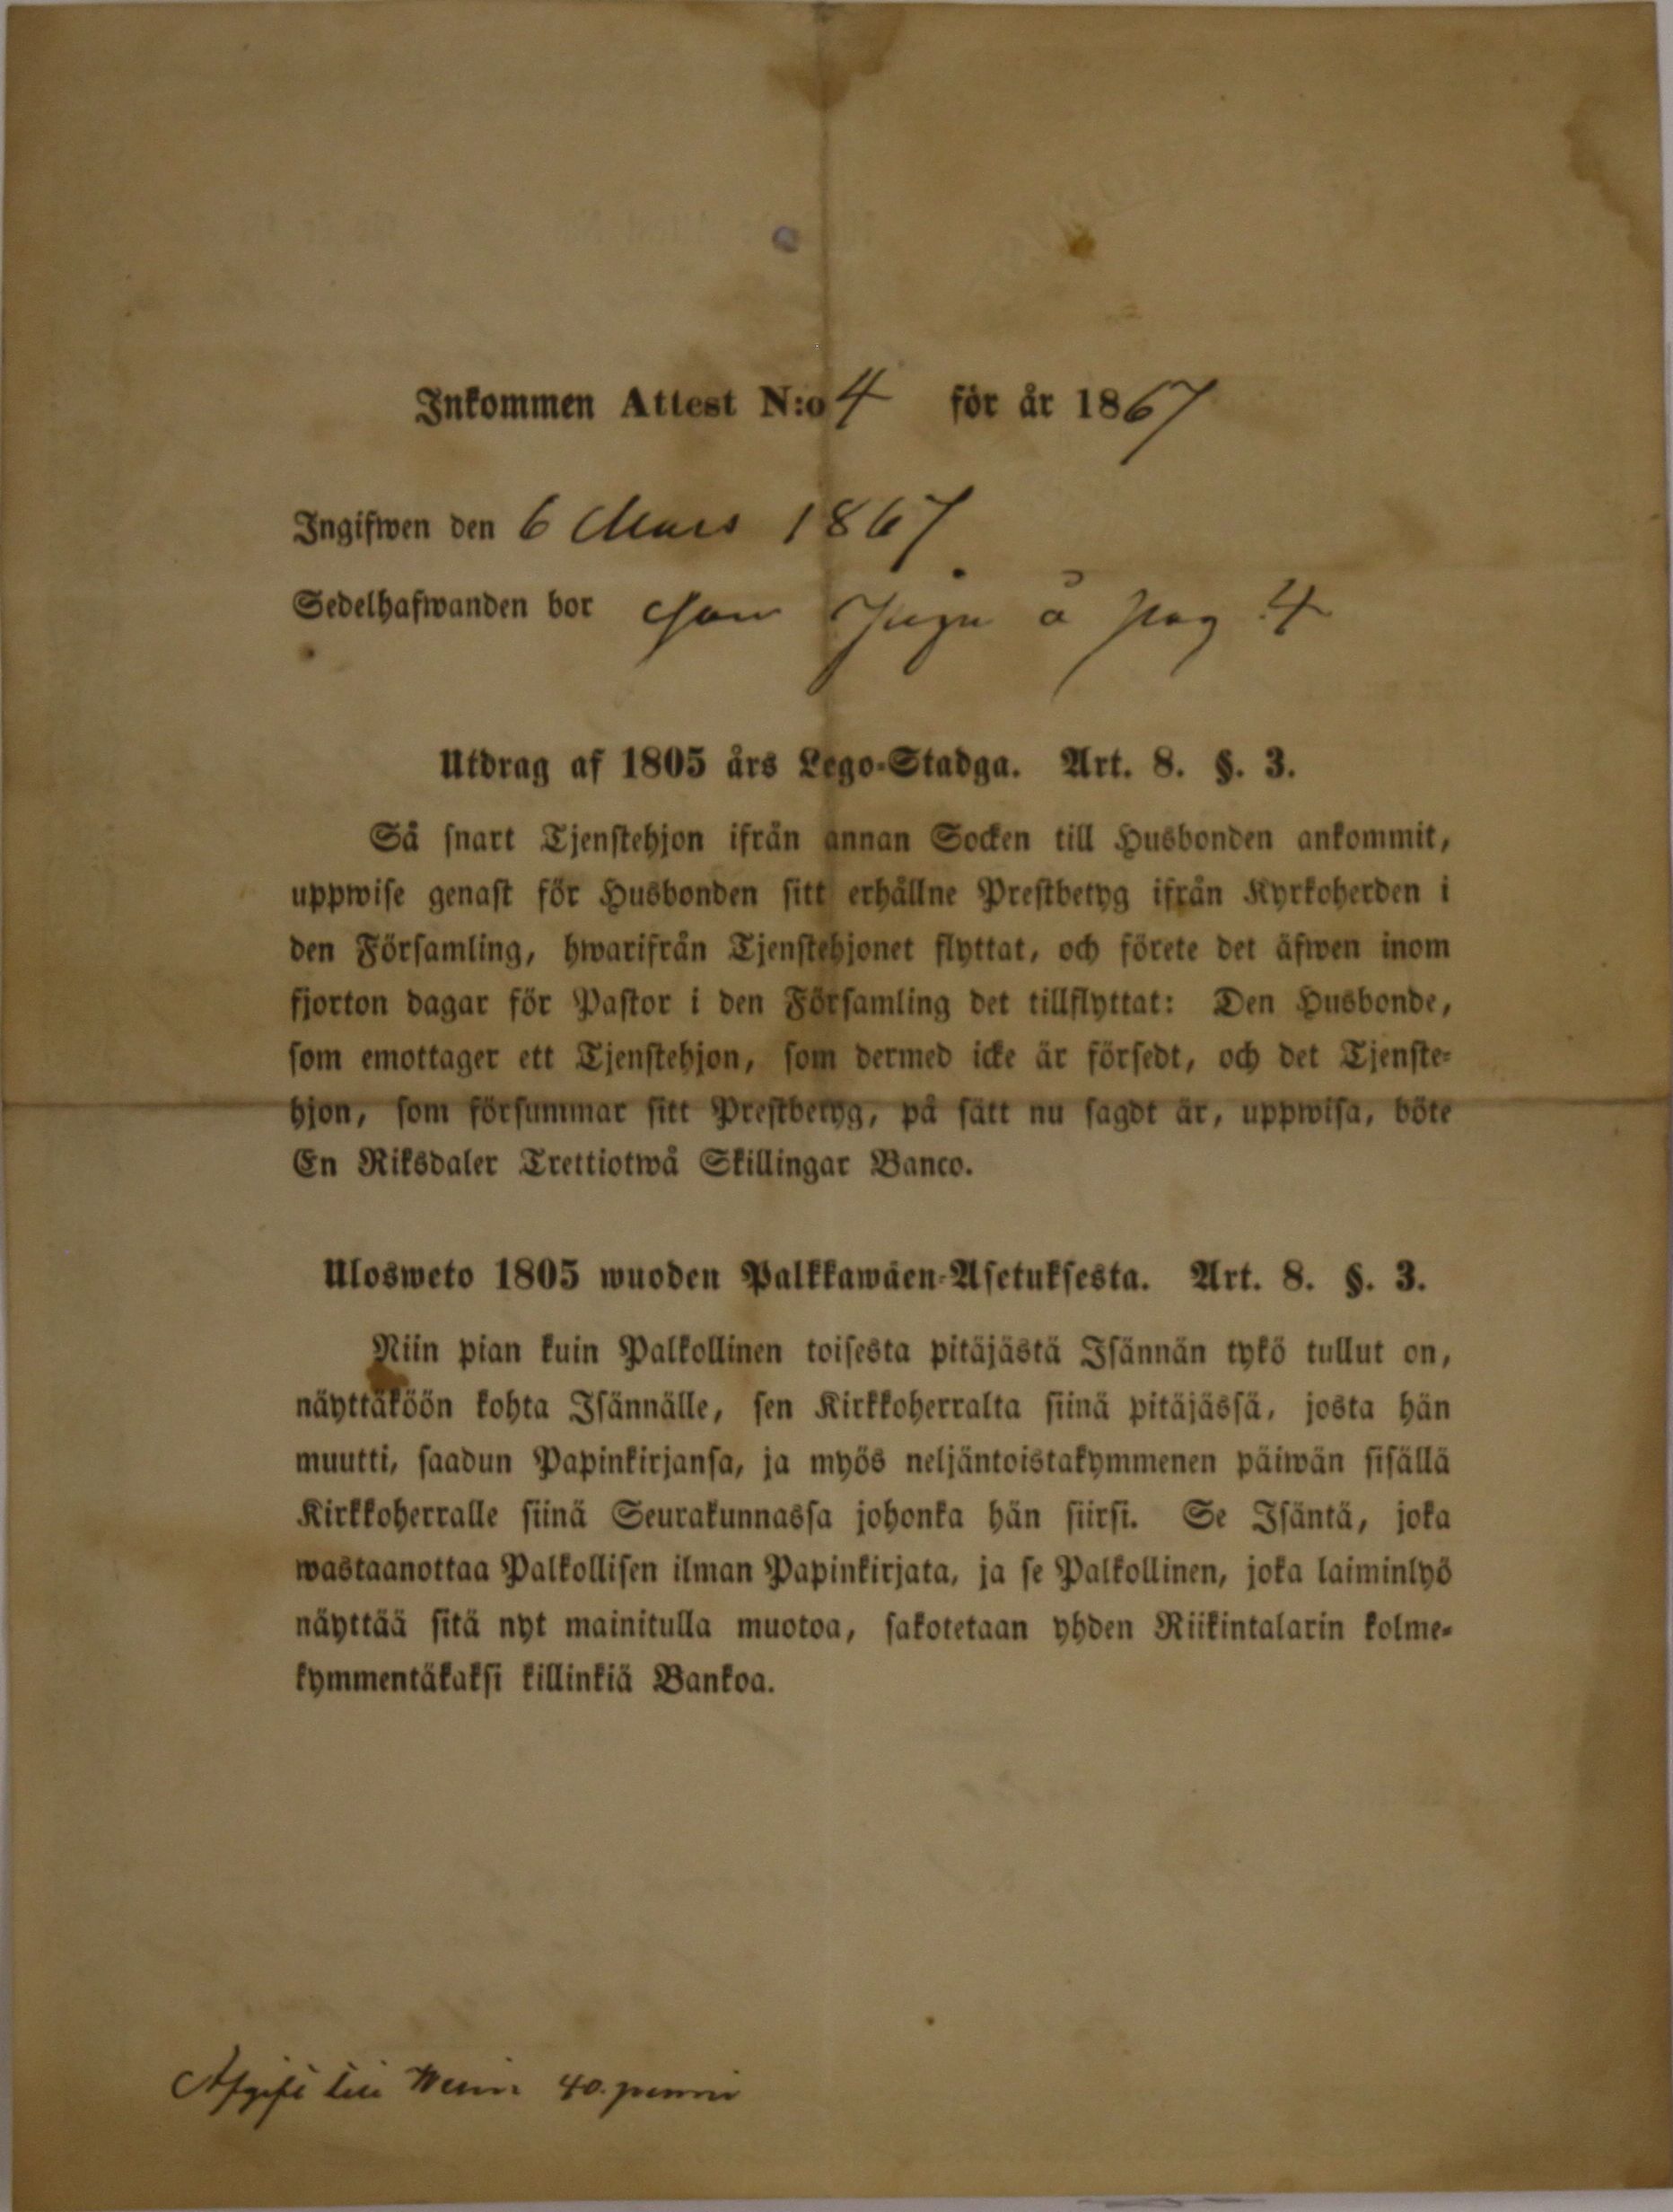 Inkommen Attest N:o 4 för år 1867
Ingifwen den 6 Mars 1867
Sedelhafwanden bor å pag 4
Utdrag af 1805 års Lego-Stadga. Art. 8. §. 3.
Så snart Tjenstehjon ifrån annan Socken till Husbonden ankommit,
uppwise genast för Husbonden sitt erhållne Prestbetyg ifrån Kyrkoherden i
den Församling, hwarifrån Tjenstehjonet flyttat, och förete det äfwen inom
fjorton dagar för Pastor i den Församling det tillflyttat: Den Husbonde,
som emottager ett Tjenstehjon, som dermed icke är försedt, och det Tjenste-
hjon, som försummar sitt Prestbetyg, på sätt nu sagdt är, uppwisa, böte
En Riksdaler Trettiotwå Skillingar Banco.
Ulosweto 1805 wuoden Palkkawäen-Asetuksesta. Art. 8. §. 3.
Niin pian kuin Palkollinen toisesta pitäjästä Isännän tykö tullut on,
näyttäköön kohta Isännälle, sen Kirkkoherralta siinä pitäjässä, josta hän
muutti, saadun Papinkirjansa, ja myös neljäntoistakymmenen päiwän sisällä
Kirkkoherralle siinä Seurakunnassa johonka hän siirsi. Se Isäntä, joka
wastaanottaa Palkollisen ilman Papinkirjata, ja se Palkollinen, joka laiminlyö
näyttää sitä nyt mainitulla muotoa, sakotetaan yhden Riikintalarin kolme-
kymmentäkaksi killinkiä Bankoa.
Afgift till 40. penni